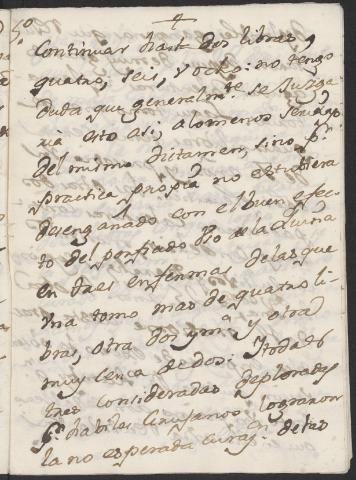 5º
continuar hasta dos libras,
quatro, seis, y ocho: no tengo
duda que generalmte. se Juzga
ria esto asi; alomenos seria yo
del mismo dictamen, sino pr.
practica propia no estubiera
desengañado con el buen efec
to del porfiado Uso de la Quina
en tres enfermas delas que
Una tomo mas de quatro li
bras, otra dos y ma. y otra
muy cerca de dos: Y todas
tres consideradas deploradas
pr. habiles Cirujanos, lograron
la no esperada curaon. de las